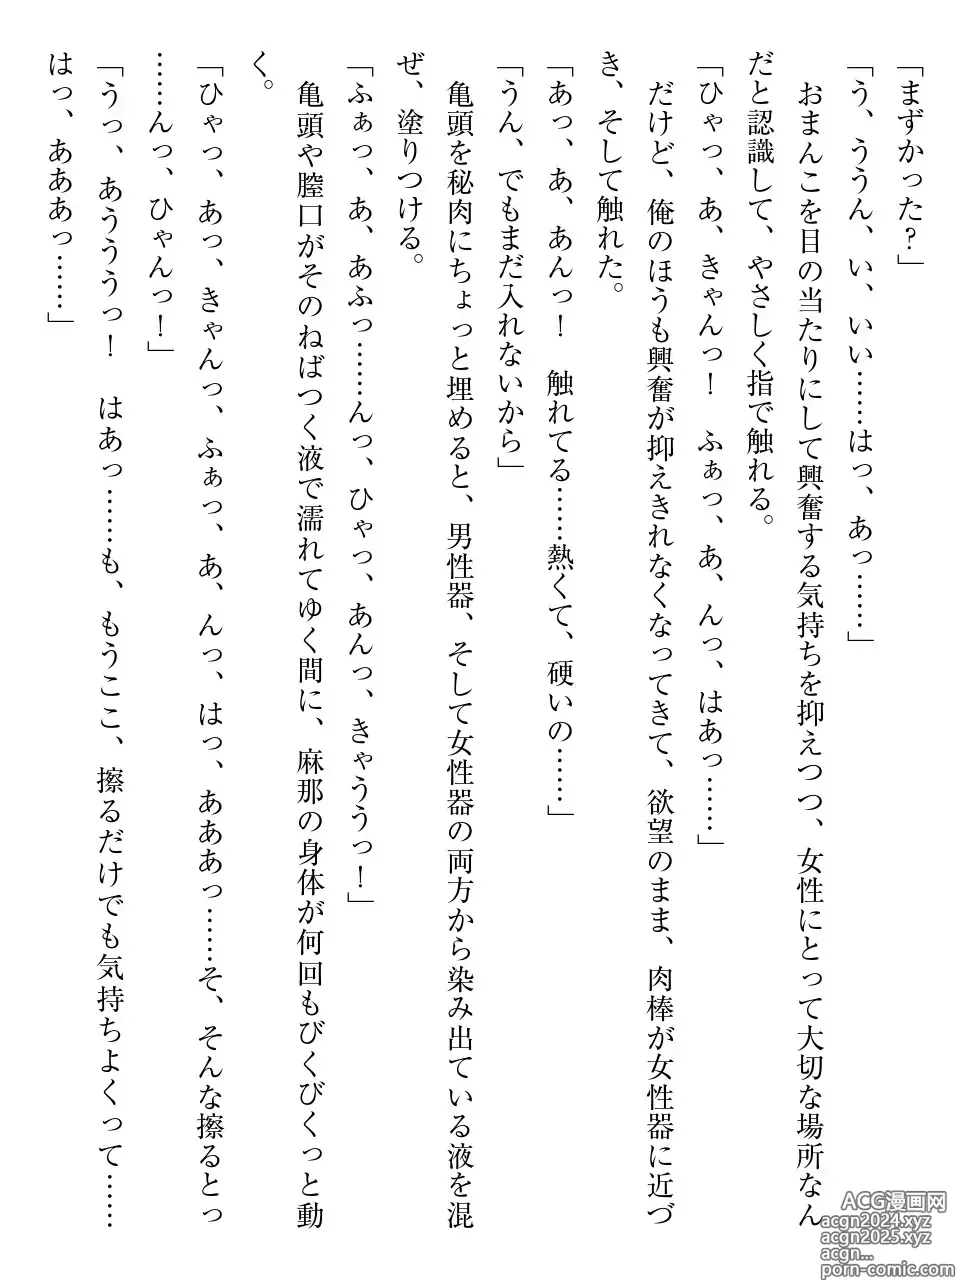 「まずかった？」
「う、ううん、い、いい……はっ、あっ……」
　おまんこを目の当たりにして興奮する気持ちを抑えつつ、女性にとって大切な場所なん
だと認識して、やさしく指で触れる。
「ひゃっ、あ、きゃんっ！　ふぁっ、あ、んっ、はあっ……」
　だけど、俺のほうも興奮が抑えきれなくなってきて、欲望のまま、肉棒が女性器に近づ
き、そして触れた。
「あっ、あ、あんっ！　触れてる……熱くて、硬いの……」
「うん、でもまだ入れないから」
　亀頭を秘肉にちょっと埋めると、男性器、そして女性器の両方から染み出ている液を混
ぜ、塗りつける。
「ふぁっ、あ、あふっ……んっ、ひゃっ、あんっ、きゃううっ！」
　亀頭や膣口がそのねばつく液で濡れてゆく間に、麻那の身体が何回もびくびくっと動
く。
「ひゃっ、あっ、きゃんっ、ふぁっ、あ、んっ、はっ、あああっ……そ、そんな擦るとっ
……んっ、ひゃんっ！」
「うっ、あうううっ！　はあっ……も、もうここ、擦るだけでも気持ちよくって……
はっ、あああっ……」
ACG漫画网
acgn2024.xyz
acgn2025.xyz
acgn...
porn-comic.com